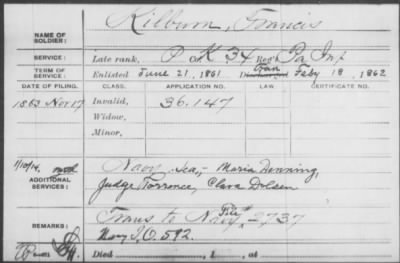 Kilburn, Francis
NAME OF SOLDIER:
SERVICE: Late rank, P Co. K 34 Reg't Pa Inf
TERM OF SERVICE: Enlisted June 21, 1861 Discharged Tran Feby 18, 1862
DATE OF FILING. CLASS. APPLICATION NO. LAW. CERTIFICATE NO.
1863 Nov 17 Invalid, 36.147
Widow,
Minor,
1/10/14.
ADDITIONAL SERVICES: Navy Sea,- Maria Denning,
Judge Torrence, Clara Dolsen
REMARKS: Trans to Navy File 2,737
Navy I.O. 592.
Died , 1 , at